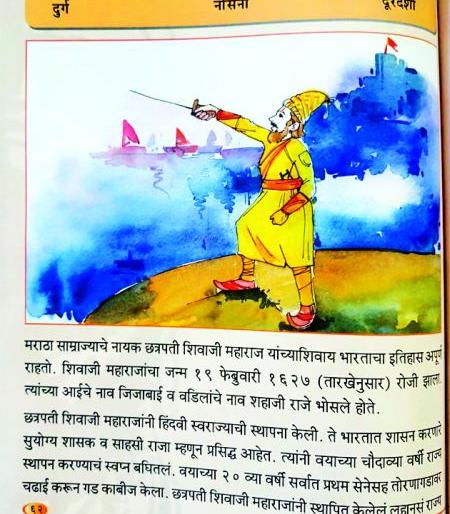 दुर्ग नासना दूरदर्शी
मराठा साम्राज्याचे नायक छत्रपती शिवाजी महाराज यांच्याशिवाय भारताचा इतिहास अपूर्ण
राहतो. शिवाजी महाराजांचा जन्म १९ फेब्रुवारी १६२७ (तारखेनुसार) रोजी झाला.
त्यांच्या आईचे नाव जिजाबाई व वडिलांचे नाव शहाजी राजे भोसले होते.
छत्रपती शिवाजी महाराजांनी हिंदवी स्वराज्याची स्थापना केली. ते भारतात शासन करणारे
सुयोग्य शासक व साहसी राजा म्हणून प्रसिद्ध आहेत. त्यांनी वयाच्या चौदाव्या वर्षी राज्य
स्थापन करण्याचं स्वप्न बघितलं. वयाच्या २० व्या वर्षी सर्वात प्रथम सेनेसह तोरणागडावर
चढाई करून गड काबीज केला. छत्रपती शिवाजी महाराजांनी स्थापित केलेलं लहानसं राज्य
६२